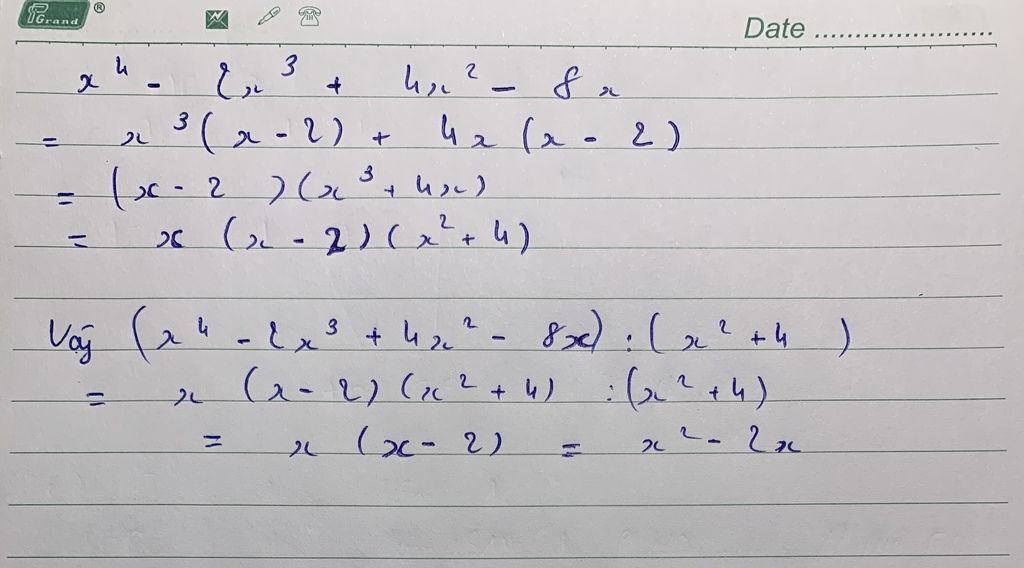 Grand ®
Date ........................
x⁴ - 2x³ + 4x² - 8x
= x³(x - 2) + 4x(x - 2)
= (x - 2)(x³ + 4x)
= x(x - 2)(x² + 4)
Vậy (x⁴ - 2x³ + 4x² - 8x) : (x² + 4)
= x(x - 2)(x² + 4) : (x² + 4)
= x(x - 2) = x² - 2x